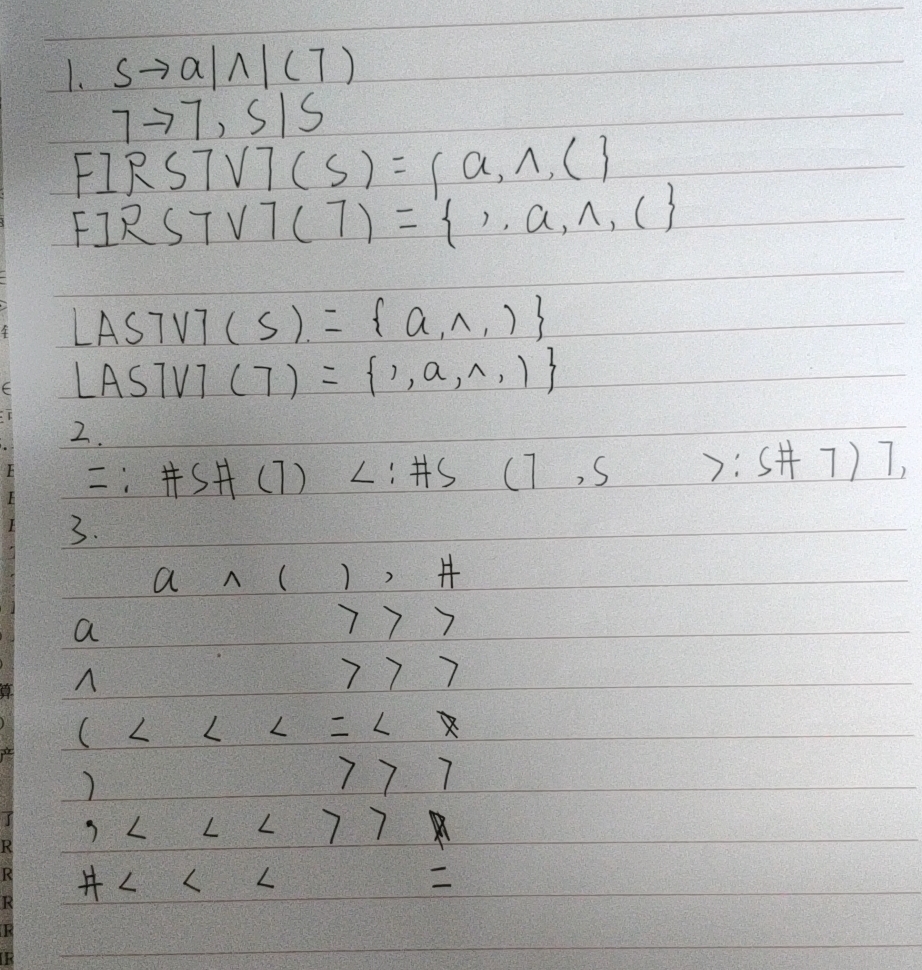 1. S→a|∧|(T)
T→T,S|S
FIRSTVT(S)={a,∧,(}
FIRSTVT(T)={,.a,∧,(}
LASTVT(S)={a,∧,)}
LASTVT(T)={,,a,∧,)}
2.
=: #S# (T) <:#S (T ,S >:S# T) T,
3.
a ∧ ( ) , #
a > > >
∧ > > >
( < < < = <
) > > >
, < < < > >
# < < < =